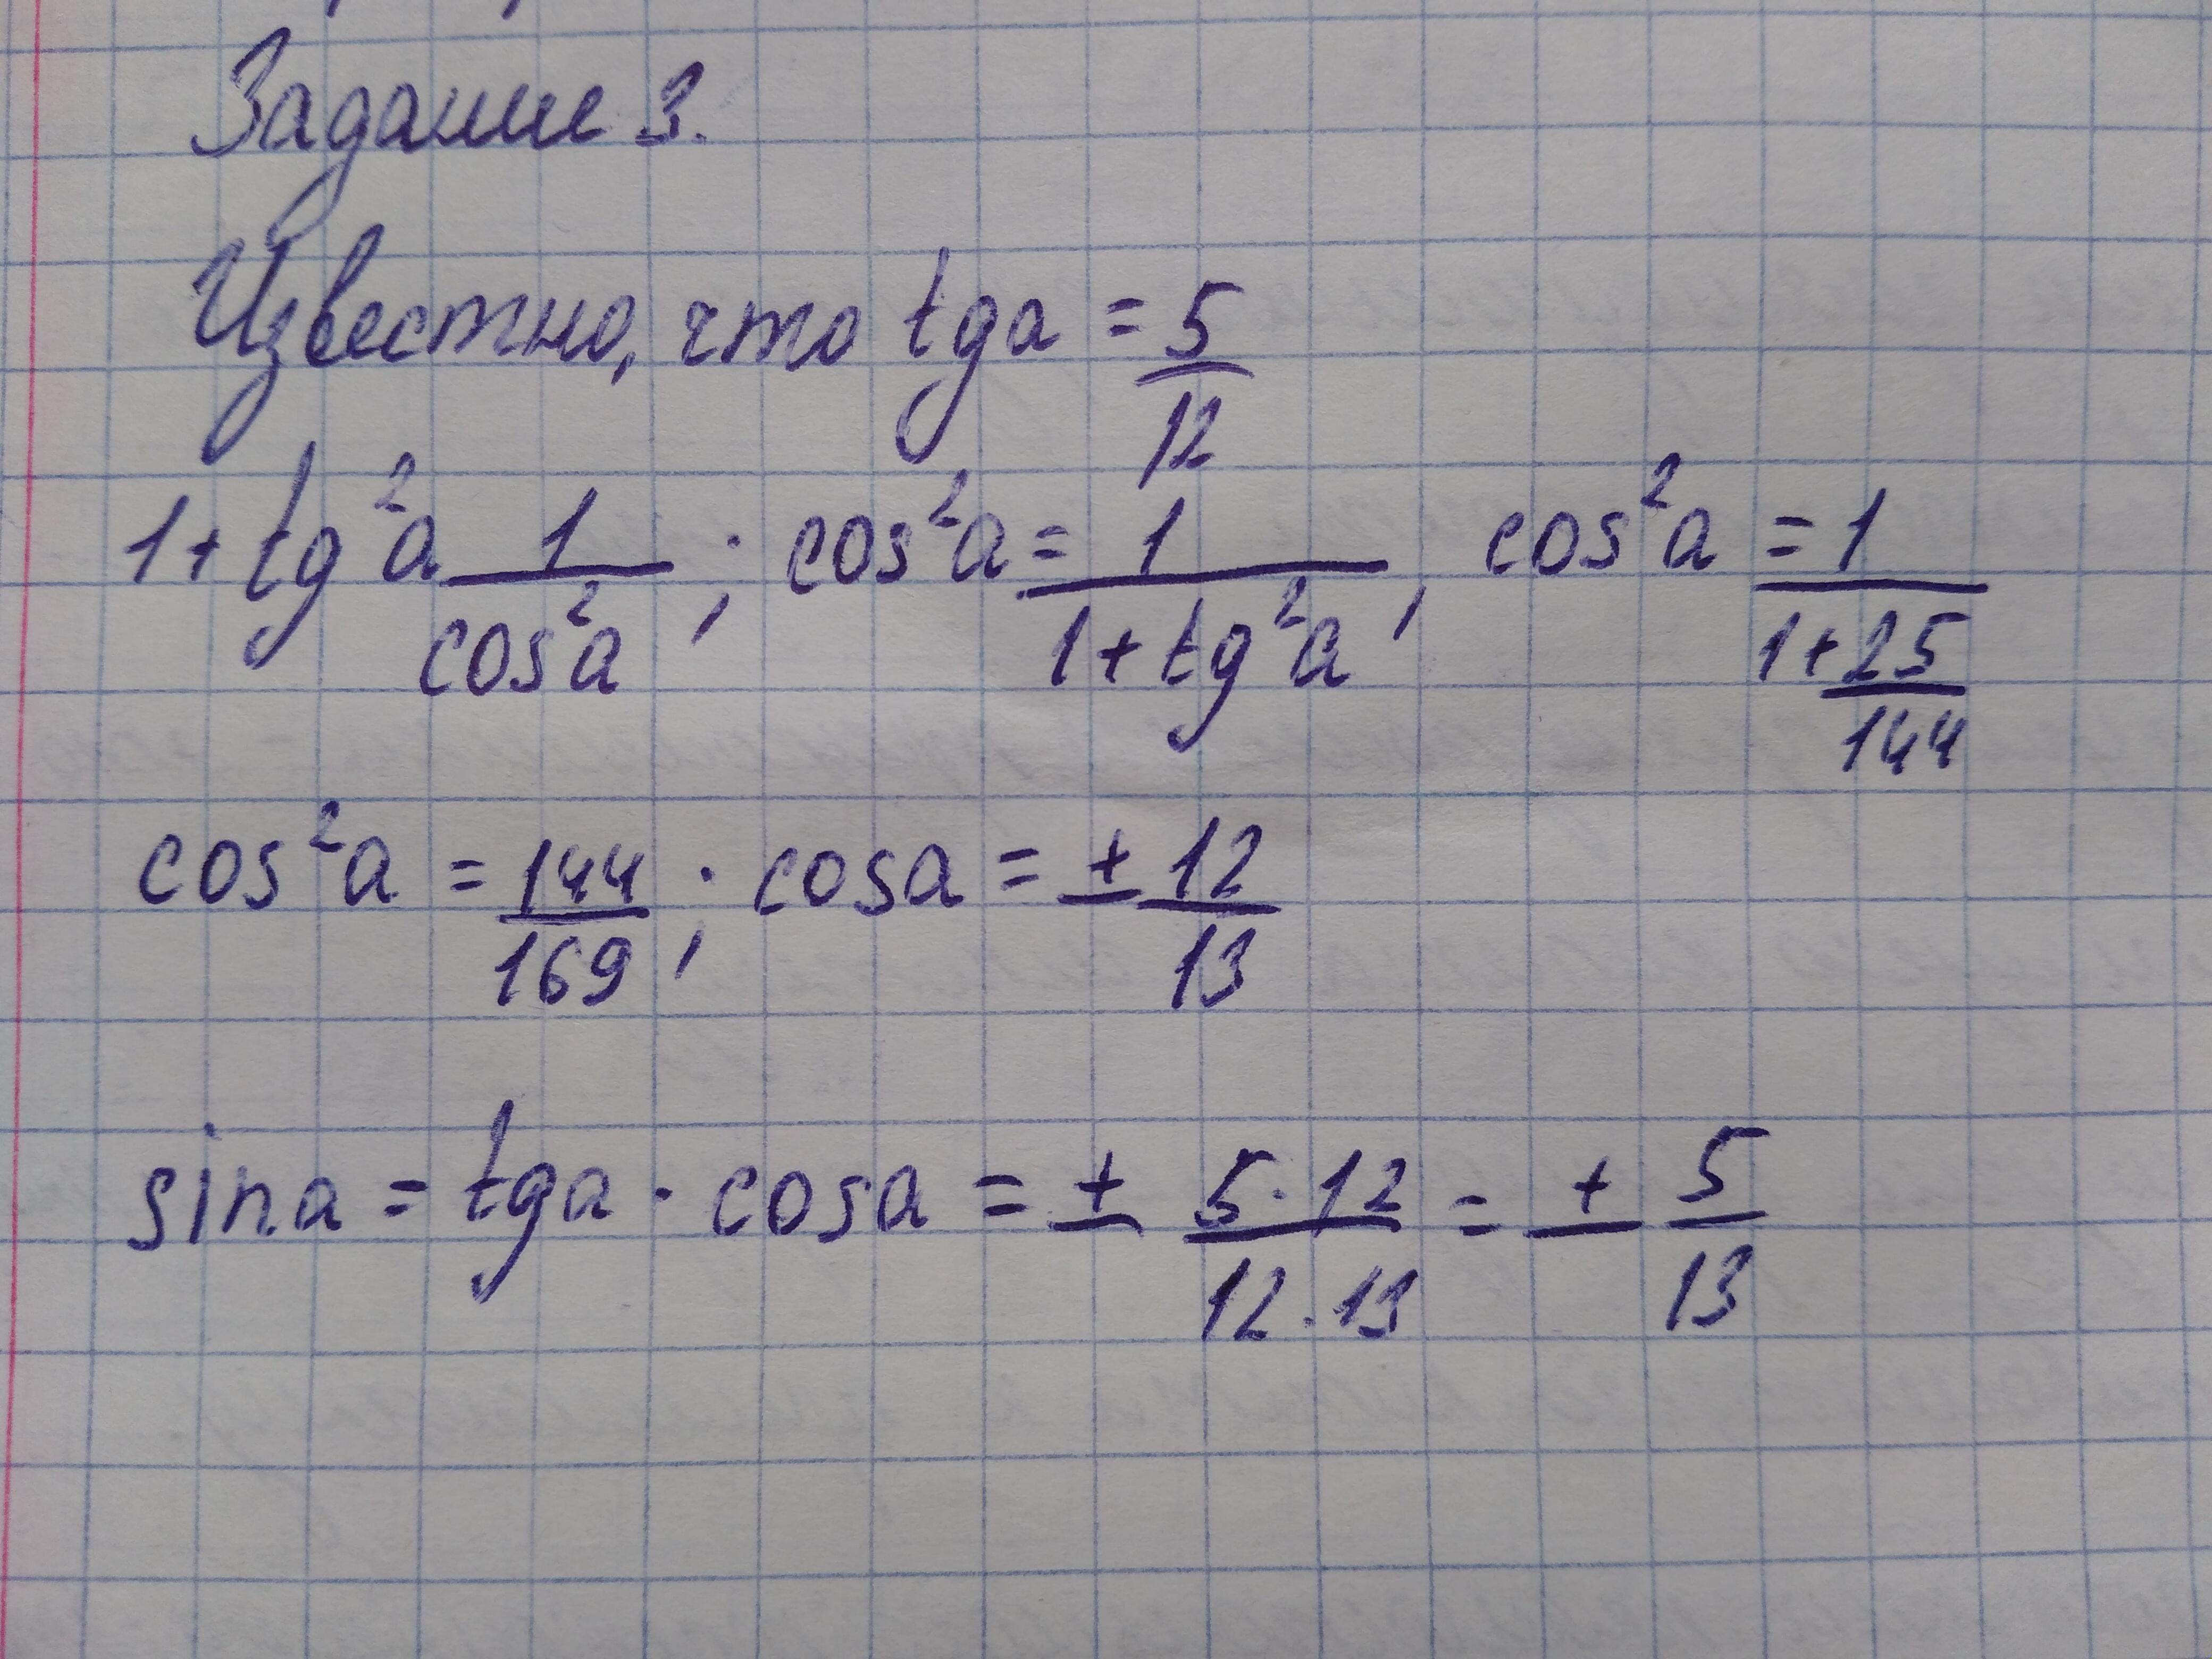 Задание 3.
Известно, что tga = 5/12
1 + tg²a 1/cos²a ; cos²a = 1/(1 + tg²a) , cos²a = 1/(1 + 25/144)
cos²a = 144/169 ; cosa = ± 12/13
sina = tga · cosa = ± 5·12/12·13 = ± 5/13